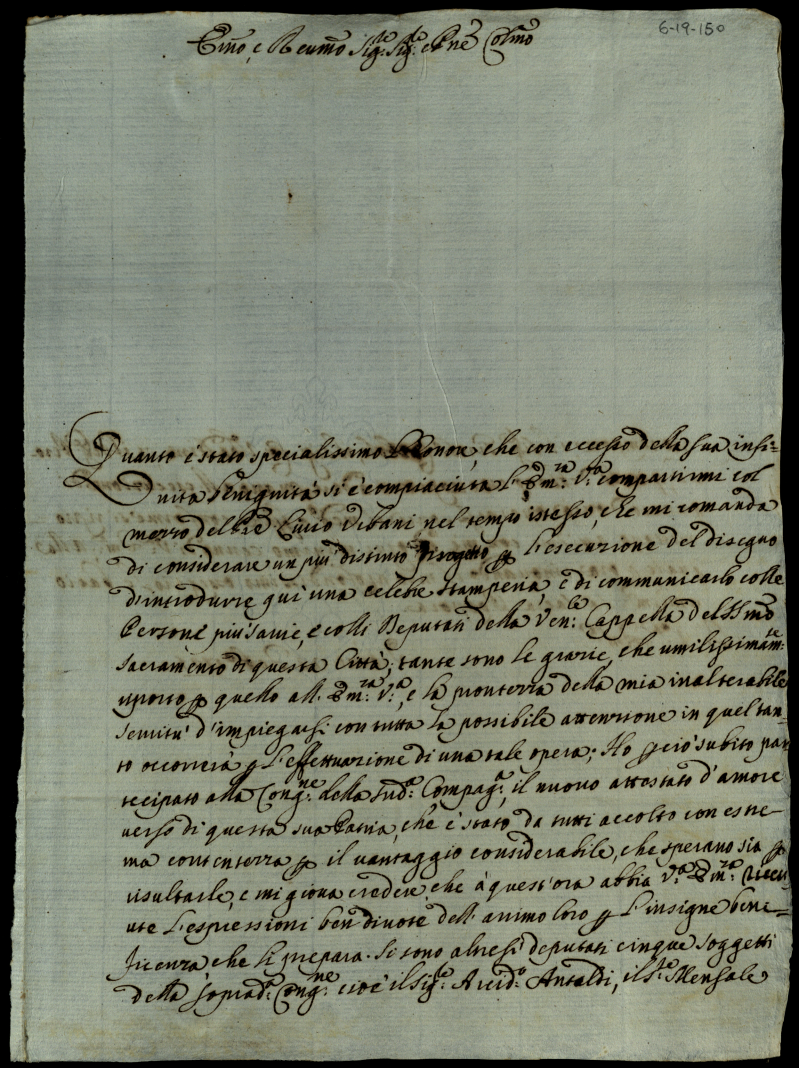 6-19-150
Emo, e Revmo Sig.re Sig.re e Pne Colmo
Quanto è stato specialissimo l'honore, che con eccesso della sua infi=
nita benignità si è compiaciuta l'Em.za V.a compartirmi col
mezzo del Livio Urbani nel tempo istesso, che mi comanda
di considerare un più distinto progetto p l'esecuzione del disegno
d'introdurre quì una celebre stamperia, e di communicarlo colle
Persone più savie, e colli Deputati della Ven.le Cappella del SSmo
Sacramento di questa Città; tante sono le grazie, che umilissimam.te
riporto p quello all'Em.za V.a, e la prontezza della mia inalterabile
servitù d'impiegarsi con tutta la possibile attenzione in quel tan=
to occorrerà p l'effettuazione di una tale opera; Ho p ciò subito par
tecipato alla Cong.ne della sud.a Compag.a il nuovo attestato d'amore
verso di questa sua Patria, ch'è stato da tutti accolto con estre=
ma contentezza p il vantaggio considerabile, che sperano sia p
risultarle, e mi giova credere, che à quest'ora abbia V.a Em.za ricevu
te l'espressioni ben divote dell'animo loro p l'insigne bene=
ficenza che li prepara. Si sono altresì deputati cinque soggetti
della soprad.a Cong.ne cioè il Sig.re Arcid.o Antaldi, il Sr Mensale